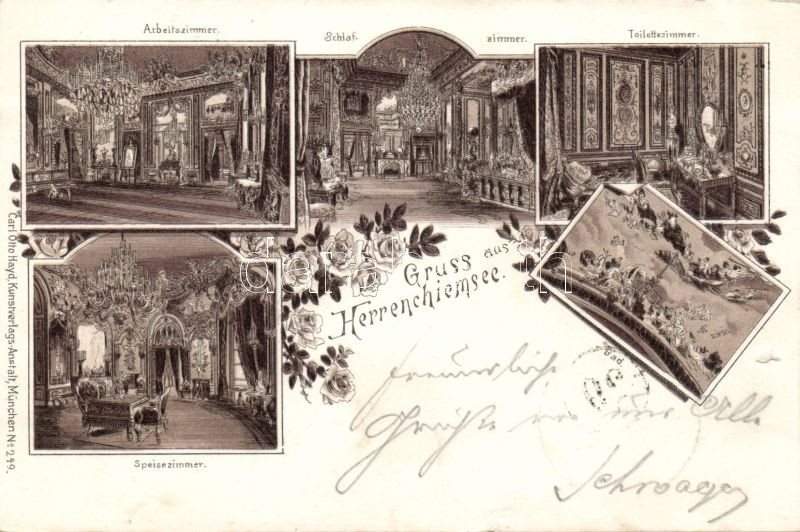 Arbeitszimmer.
Schlaf- zimmer.
Toilettezimmer.
Gruss aus
Herrenchiemsee.
Bad
Speisezimmer.
Carl Otto Hayd, Kunstverlags-Anstalt, München No 249.
freundliche
Grüße von uns Alle
Schwager